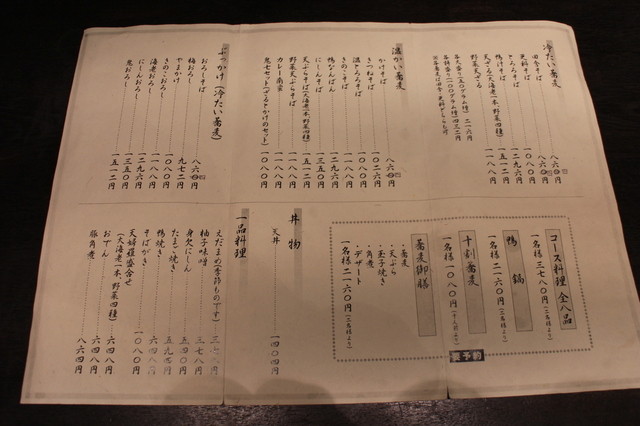 冷たい蕎麦
田舎そば 八六〇円
更科そば 八六〇円
とろろそば 一二九六円
鴨汁そば 一一八八円
天ざる(大海老一本、野菜四種) 一五一二円
野菜天ざる 一一八八円
各大盛り(一五〇グラム増) 二一六円
各特盛り(三〇〇グラム増) 四三二円
※各蕎麦は田舎・更科どちらも可
温かい蕎麦
かけそば 八六〇円
きつねそば 一〇二六円
温とろろそば 一一八八円
きのこそば 一一八八円
鴨なんばん 一二九六円
にしんそば 一三五〇円
天ぷらそば(大海老一本、野菜四種) 一五一二円
野菜天ぷらそば 一一八八円
カレー南蛮 一一八八円
鬼七セット(ざるとかけのセット) 一〇八〇円
ぶっかけ(冷たい蕎麦)
おろしそば 八六〇円
梅おろし 九七二円
やまかけ 一〇八〇円
きのこおろし 一一八八円
海老おろし 一二九六円
にしんおろし 一三五〇円
鬼おろし 一五一二円
コース料理 全八品
一名様 三七八〇円(二名様より)
鴨鍋
一名様 二一六〇円(二名様より)
十割蕎麦
一名様 一〇八〇円
蕎麦御膳
・蕎麦
・天ぷら
・玉子焼き
・角煮
・デザート
一名様 二一六〇円(二名様より)
要予約
丼物
天丼 一四〇四円
一品料理
えだまめ(季節ものです) 三七八円
柚子味噌 三七八円
身欠にしん 五四〇円
たまご焼き 五九四円
鴨焼き 六四八円
そばがき 六四八円
天婦羅盛合せ 一〇八〇円
(大海老一本、野菜四種)
おでん 六四八円
豚角煮 八六四円